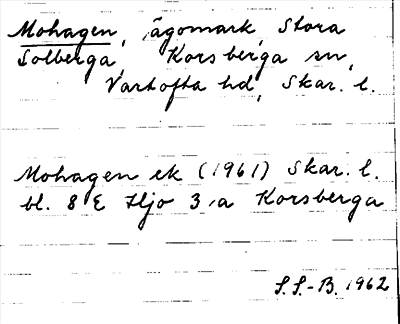 Mohagen, ägomark, Stora
Solberga, Korsberga sn,
Vartofta hd, Skar. l.
Mohagen ek (1961) Skar. l.
bl. 8 E Hjo 3 a Korsberga
S.S.-B. 1962